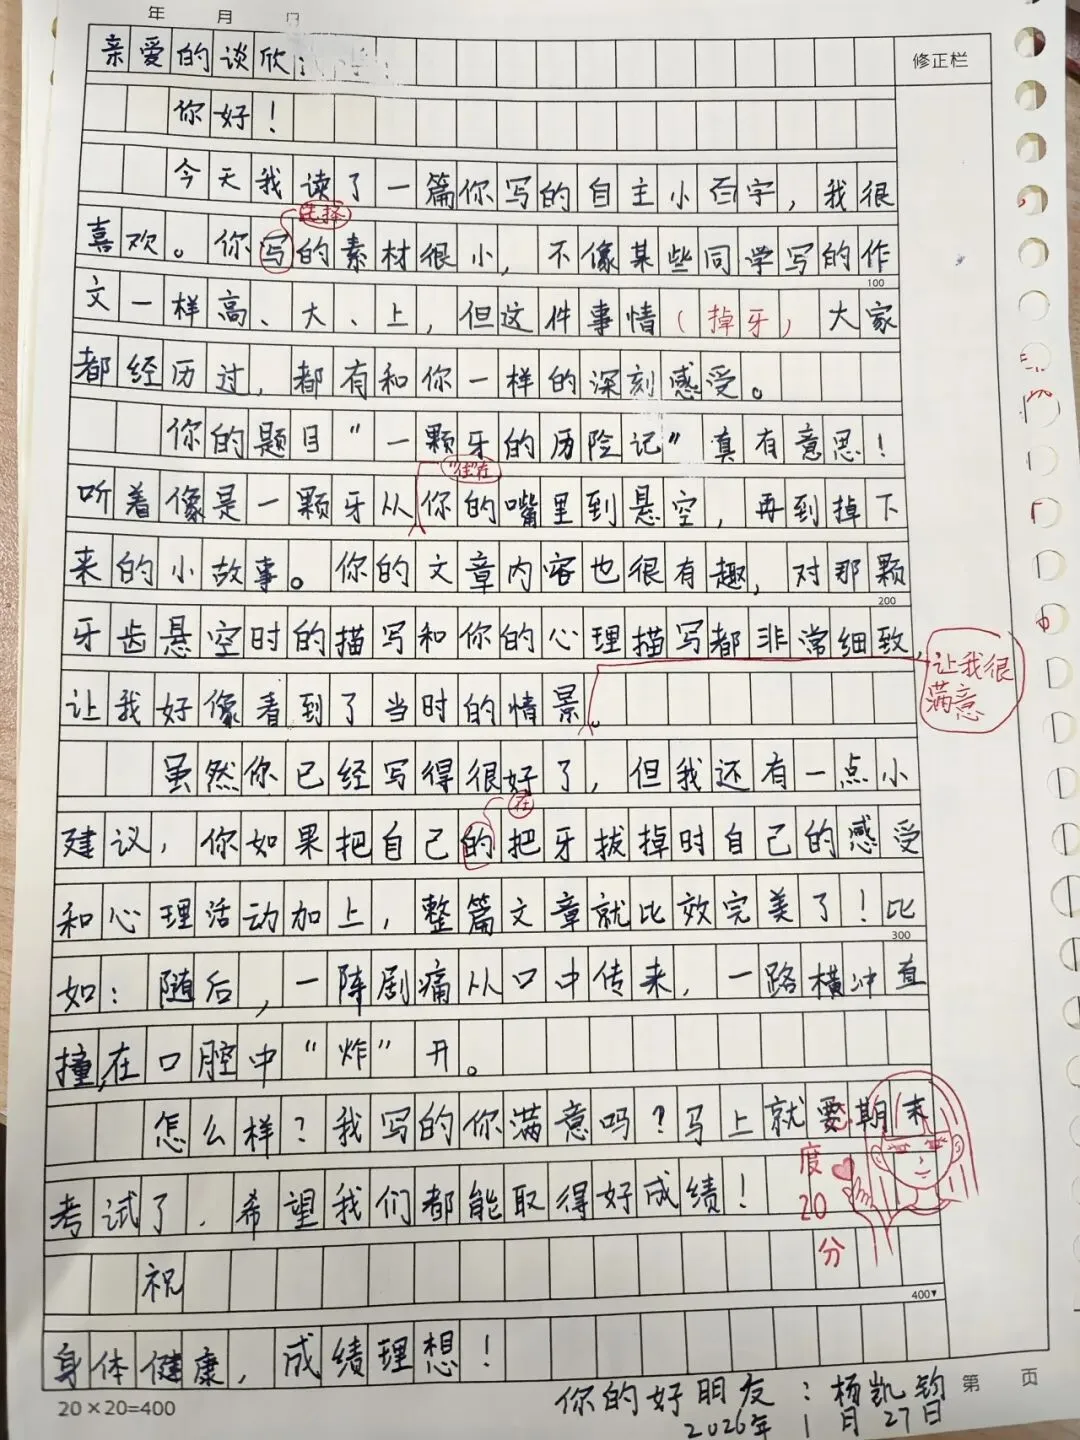 年 月 日
亲爱的谈欣:
修正栏
你好！
今天我读了一篇你写的自主小百字，我很
选择
喜欢。你写的素材很小，不像某些同学写的作
100
文一样高、大、上，但这件事情(掉牙)，大家
都经历过，都有和你一样的深刻感受。
你的题目“一颗牙的历险记”真有意思！
“住”在
听着像是一颗牙从你的嘴里到悬空，再到掉下
来的小故事。你的文章内容也很有趣，对那颗
200
牙齿悬空时的描写和你的心理描写都非常细致，
让我很
满意
让我好像看到了当时的情景。
虽然你已经写得很好了，但我还有一点小
在
建议，你如果把自己的把牙拔掉时自己的感受
和心理活动加上，整篇文章就比效完美了！比
300
如：随后，一阵剧痛从口中传来，一路横冲直
撞，在口腔中“炸”开。
怎么样？我写的你满意吗？马上就要期末
度
考试了，希望我们都能取得好成绩！
20
分
祝
400
身体健康，成绩理想！
20×20=400
你的好朋友：杨凯钧
第 页
2026年1月27日